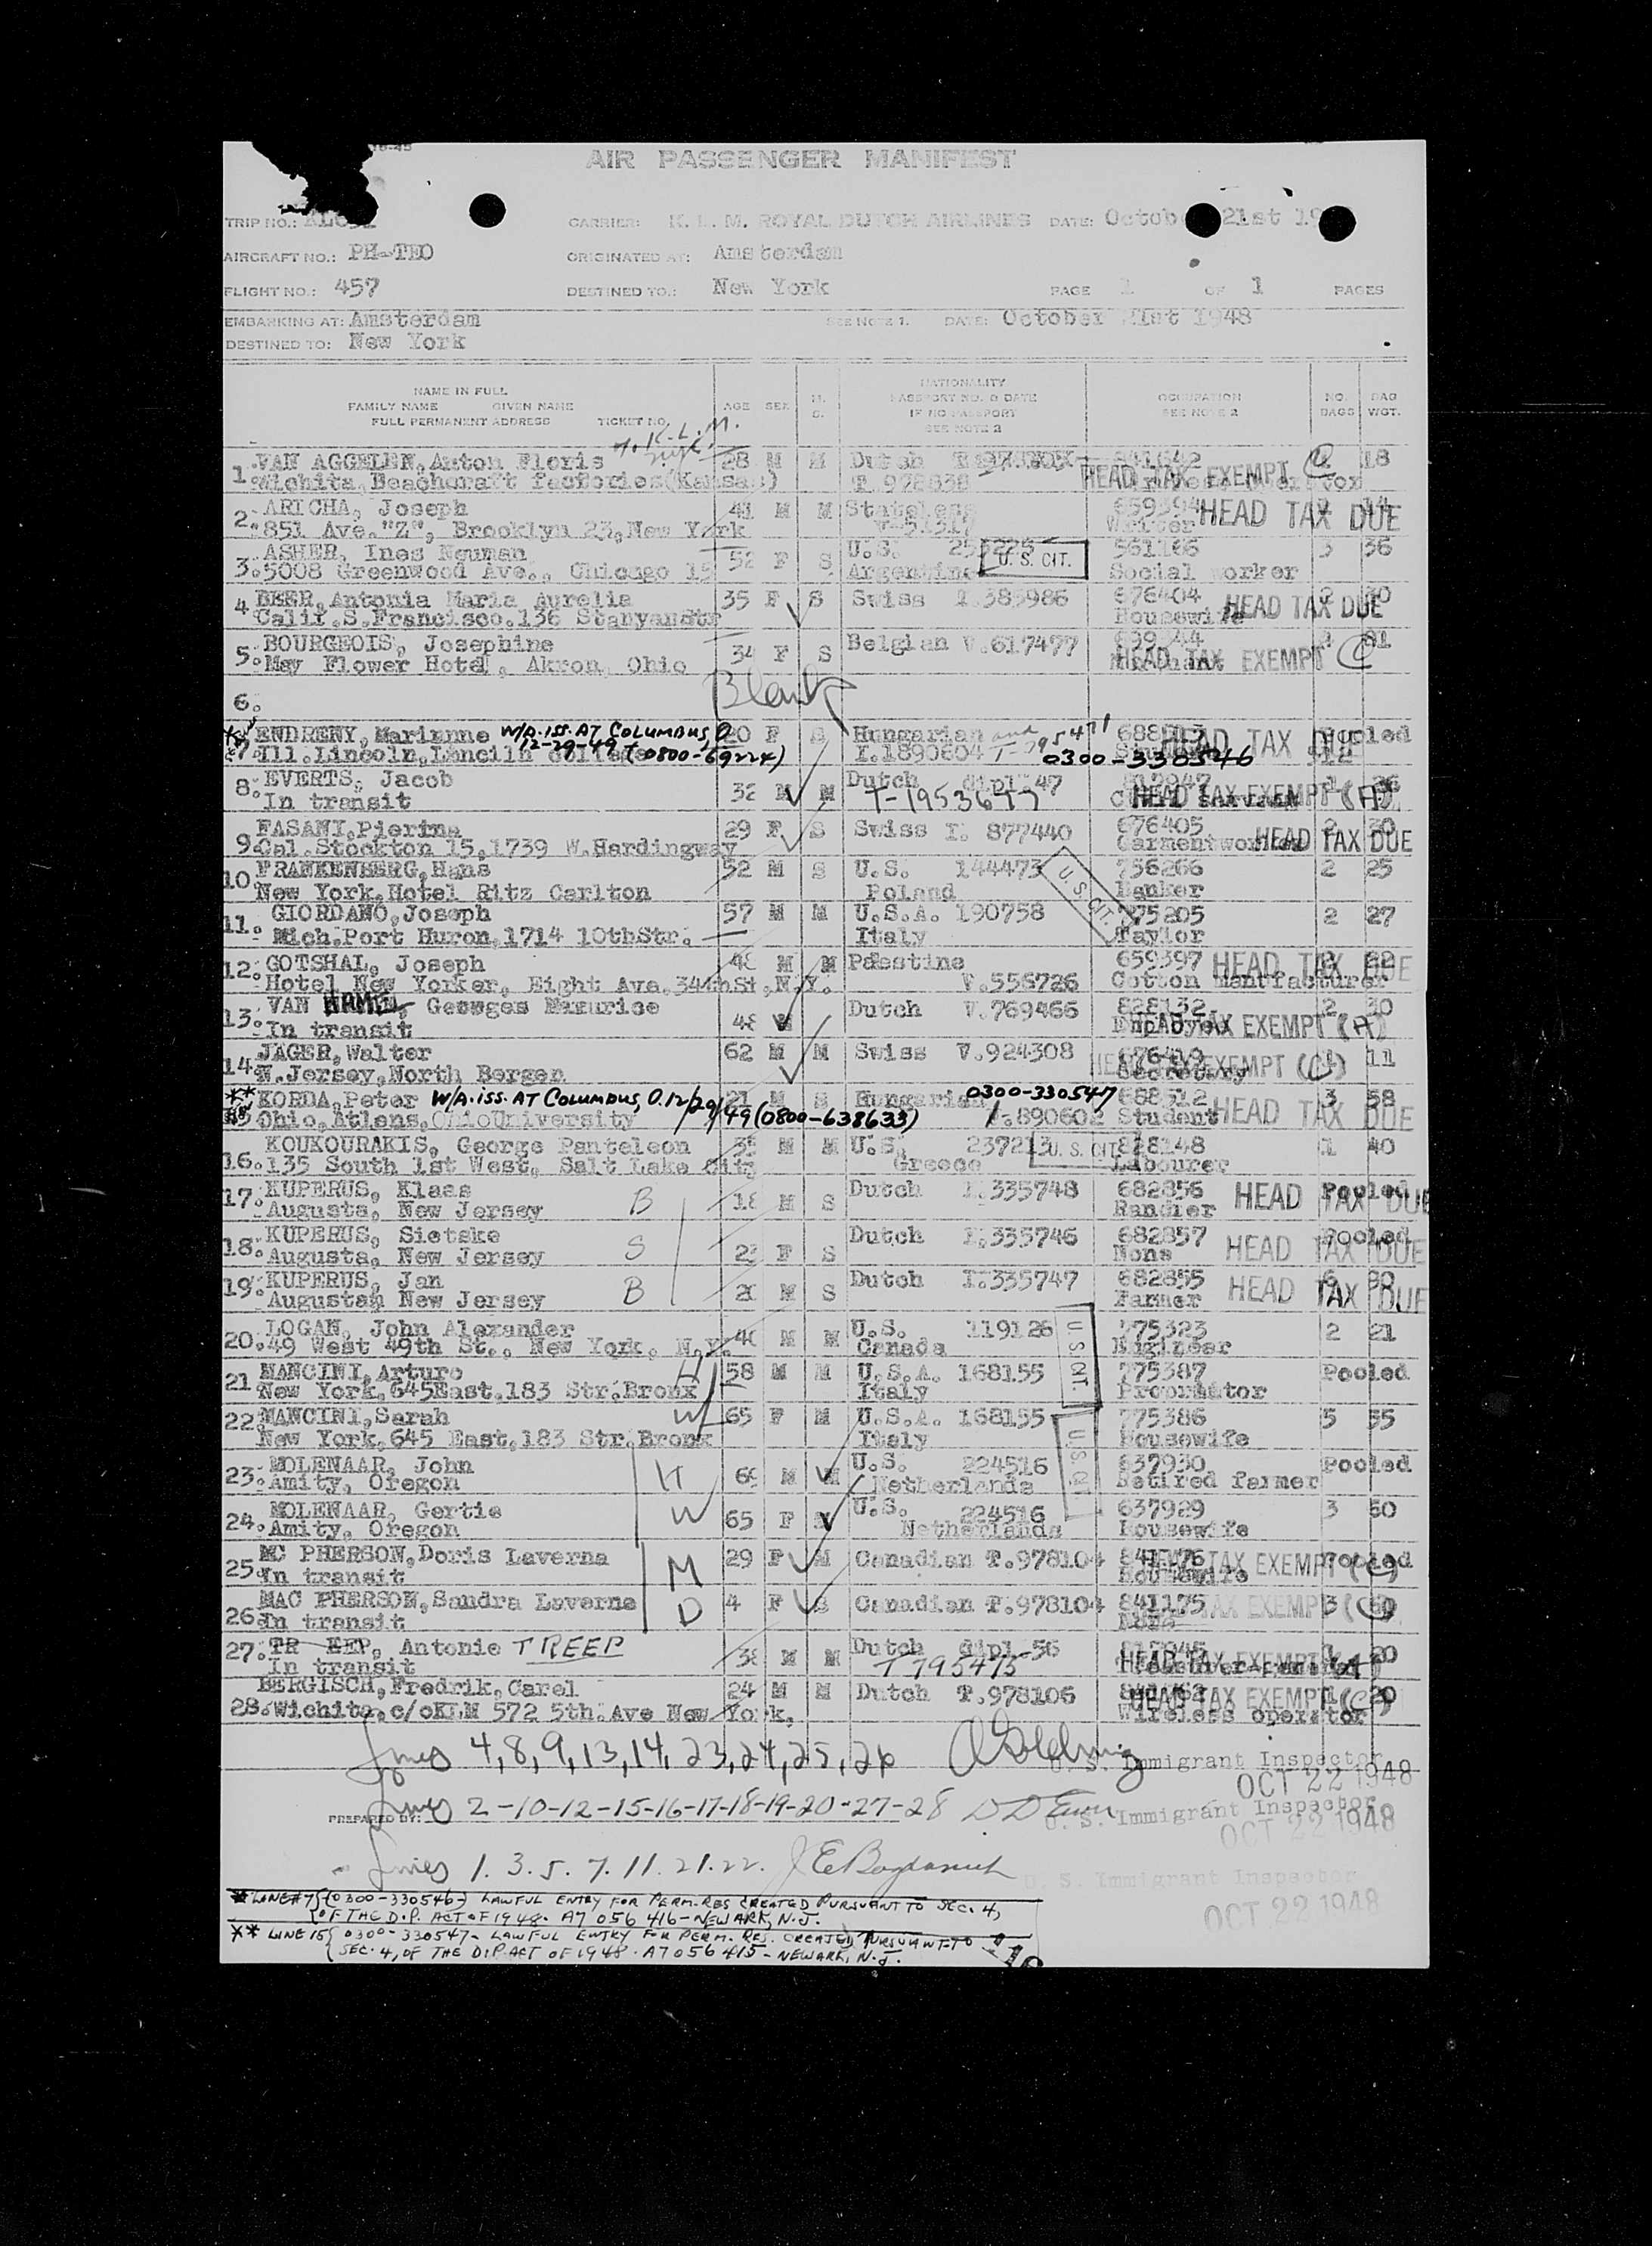 AIR PASSENGER MANIFEST
TRIP NO.:
CARRIER: K. L. M. ROYAL DUTCH AIRLINES DATE: October 21st
AIRCRAFT NO.: PH-TEO ORIGINATED AT: Amsterdam
FLIGHT NO.: 457 DESTINED TO.: New York PAGE 1 OF 1 PAGES
EMBARKING AT: Amsterdam SEE NOTE 1. DATE: October 21st 1948
DESTINED TO: New York
NAME IN FULL
FAMILY NAME GIVEN NAME
FULL PERMANENT ADDRESS TICKET NO.
AGE SEX M. S.
NATIONALITY
PASSPORT NO. & DATE
IF NO PASSPORT
SEE NOTE 2
OCCUPATION
SEE NOTE 2
NO. BAGS
BAG WGT.
K.L.M.
1. VAN AGGELEN, Anton Floris 28 M M Dutch 18
Wichita, Beachcraft factories(Kansas) T.978838 HEAD TAX EXEMPT C
2. ARICHA, Joseph 41 M M Stateless 659394 HEAD TAX DUE 2 14
851 Ave."Z", Brooklyn 23, New York V-51517 Writer
3. ASHER, Ines Neuman 52 F S U.S. 253225 561166 3 36
5008 Greenwood Ave., Chicago 15 Argentine U. S. CIT. Social worker
4 BEER, Antonia Maria Aurelia 35 F S Swiss I.385986 676404 HEAD TAX DUE 2 30
Calif.S.Francisco.136 StanyanStr Housewife
5. BOURGEOIS, Josephine 34 F S Belgian V.617477 HEAD TAX EXEMPT C
May Flower Hotel, Akron, Ohio
6. Blank
* 7. ENDRENY, Marianne W/A.ISS.AT COLUMBUS, O. 20 F S Hungarian and T-795471 HEAD TAX DUE Pooled
Ill.Lincoln, 12-29-49 (0800-69224) I.1890604 0300-330546
8. EVERTS, Jacob 32 M M Dutch dipl.47 HEAD TAX EXEMPT (A)
In transit T-1953677
9. FASANI, Pierina 29 F S Swiss I. 877440 676405 HEAD TAX DUE 2 30
Cal.Stockton 15,1739 W.Hardingway Garmentworker
10 FRANKENBERG, Hans 52 M S U.S. 144473 756266 2 25
New York, Hotel Ritz Carlton Poland U. S. CIT. Banker
11. GIORDANO, Joseph 57 M M U.S.A. 190758 775205 2 27
Mich.Port Huron, 1714 10thStr. Italy Taylor
12. GOTSHAL, Joseph M M Palestine 659397 HEAD TAX DUE
Hotel New Yorker, Eight Ava.34thSt,N.Y. V.556726 Cotton manufacturer
13. VAN HAMEL, Georges Maxurice M Dutch V.769466 828132 2 30
In transit Employee HEAD TAX EXEMPT (A)
14. JAGER, Walter 62 M M Swiss V.924308 HEAD TAX EXEMPT (C) 1 11
N.Jersey, North Bergen Secretary
** 15 KORDA, Peter W/A.ISS.AT COLUMBUS, O. 12/29/49 (0800-638633) 21 M S Hungarian 0300-330547 688512 HEAD TAX DUE 3 58
Ohio, Atlens, OhioUniversity I.890602 Student
16. KOUKOURAKIS, George Panteleon 35 M M U.S. 237213 U. S. CIT. 828148 1 40
135 South 1st West, Salt Lake City Greece Labourer
17. KUPERUS, Klaas B 18 M S Dutch I.335748 682856 HEAD TAX DUE Pooled
Augusta, New Jersey
18. KUPERUS, Sietske S F S Dutch I.335746 682857 HEAD TAX DUE Pooled
Augusta, New Jersey None
19. KUPERUS, Jan B M S Dutch I.335747 682855 HEAD TAX DUE
Augustam New Jersey Farmer
20. LOGAN, John Alexander M M U.S. 119126 775323 2 21
49 West 49th St., New York, N.Y. Canada U. S. CIT. Enginear
21 MANCINI, Arturo H 58 M M U.S.A. 168155 775387 Pooled
New York, 645East.183 Str.Bronx Italy
22. MANCINI, Sarah W 65 F M U.S.A. 168155 775386 5 55
New York, 645 East, 183 Str.Bronx Italy U. S. CIT. Housewife
23. MOLENAAR, John H M M U.S. 224516 637930 Pooled
Amity, Oregon Netherlands Retired farmer
24. MOLENAAR, Gertie W 65 F M U.S. 224516 637929 3 50
Amity, Oregon Netherlands Housewife
25 MC PHERSON, Doris Laverna M 29 F M Canadian T.978104 841176 HEAD TAX EXEMPT (C) Pooled
In transit Housewife
26 MAC PHERSON, Sandra Laverne D 4 F S Canadian T.978104 841175 TAX EXEMPT (C) 3 50
In transit None
27. TR EEP, Antonie TREEP M M Dutch dipl-56 HEAD TAX EXEMPT (A) 20
In transit T 795475
28. BERGISCH, Fredrik, Carel 24 M M Dutch T.978106 HEAD TAX EXEMPT (C) 1 20
Wichita, c/oKLM 572 5th.Ave New York, Wireless operator
Lines 4,8,9,13,14,23,24,25,26 U. S. Immigrant Inspector
OCT 22 1948
PREPARED BY: Lines 2-10-12-15-16-17-18-19-20-27-28 U. S. Immigrant Inspector
OCT 22 1948
Lines 1.3.5.7.11.21.22. U. S. Immigrant Inspector
OCT 22 1948
* LINE #7 {(0300-330546) LAWFUL ENTRY FOR PERM. RES CREATED PURSUANT TO SEC. 4,
OF THE D.P. ACT OF 1948. A7 056 416 - NEWARK, N.J.
** LINE 15 { 0300-330547 - LAWFUL ENTRY FOR PERM. RES. CREATED PURSUANT TO
SEC. 4, OF THE D.P. ACT OF 1948. A7 056 415 - NEWARK, N.J.